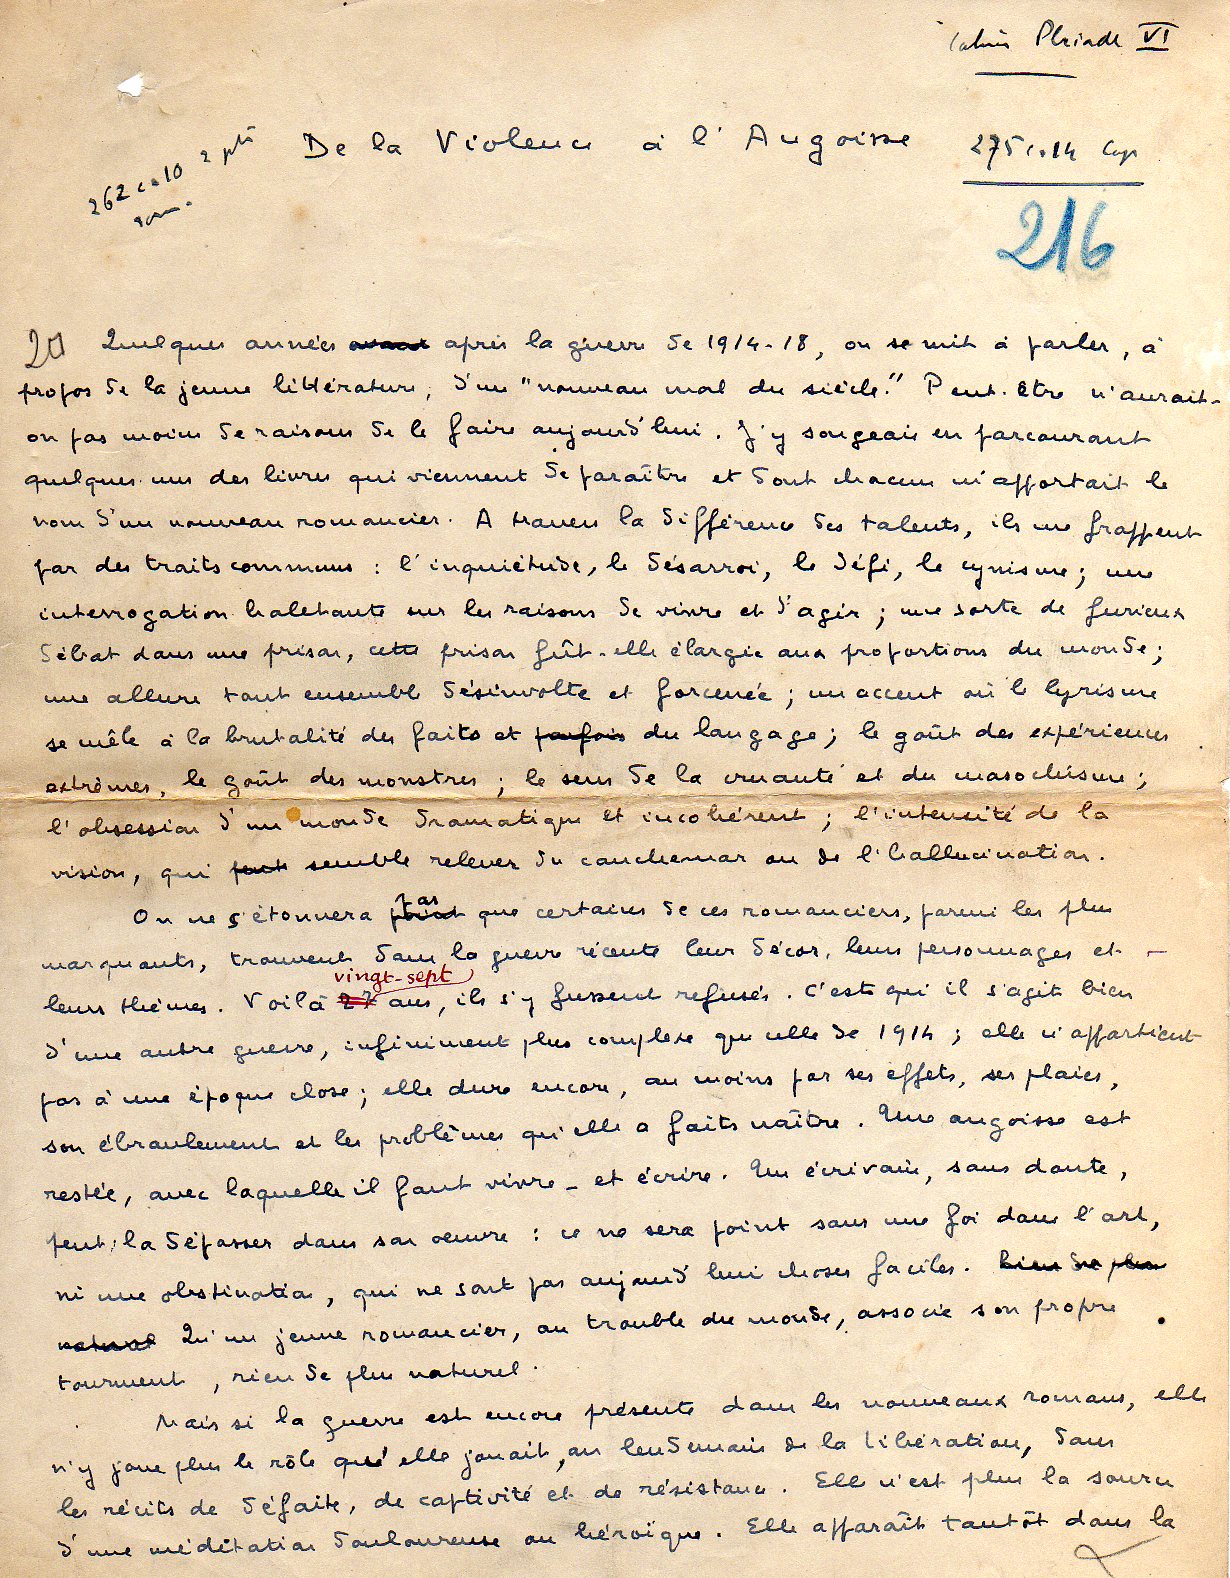 Cahiers Pléiade VI
De la Violence à l'Angoisse
275 c. 14 Cap
262 c. 10 2 pts
rom.
216
20 Quelques années avant après la guerre de 1914-18, on se mit à parler, à
propos de la jeune littérature, d'un "nouveau mal du siècle." Peut-être n'aurait-
on pas moins de raisons de le faire aujourd'hui. J'y songeais en parcourant
quelques-uns des livres qui viennent de paraître et dont chacun m'apportait le
nom d'un nouveau romancier. A travers la différence des talents, ils me frappent
par des traits communs : l'inquiétude, le désarroi, le défi, le cynisme ; une
interrogation haletante sur les raisons de vivre et d'agir ; une sorte de furieux
débat dans une prison, cette prison fût-elle élargie aux proportions du monde ;
une allure tout ensemble désinvolte et forcenée ; un accent où le lyrisme
se mêle à la brutalité des faits et parfois du langage ; le goût des expériences
extrêmes, le goût des monstres ; le sens de la cruauté et du masochisme ;
l'obsession d'un monde dramatique et incohérent ; l'intensité de la
vision, qui peut semble relever du cauchemar ou de l'hallucination.
On ne s'étonnera point pas que certains de ces romanciers, parmi les plus
marquants, trouvent dans la guerre récente leur décor, leurs personnages et
leurs thèmes. Voilà 27 vingt-sept ans, ils s'y fussent refusés. C'est qu'il s'agit bien
d'une autre guerre, infiniment plus complexe que celle de 1914 ; elle n'appartient
pas à une époque close ; elle dure encore, au moins par ses effets, ses plaies,
son ébranlement et les problèmes qu'elle a faits naître. Une angoisse est
restée, avec laquelle il faut vivre – et écrire. Un écrivain, sans doute,
peut la dépasser dans son oeuvre : ce ne sera point sans une foi dans l'art,
ni une obstination, qui ne sont pas aujourd'hui choses faciles. Rien de plus
naturel Qu'un jeune romancier, au trouble du monde, associe son propre
tourment, rien de plus naturel.
Mais si la guerre est encore présente dans les nouveaux romans, elle
n'y joue plus le rôle qu'elle jouait, au lendemain de la Libération, dans
les récits de défaite, de captivité et de résistance. Elle n'est plus la source
d'une méditation douloureuse ou héroïque. Elle apparaît tantôt dans la